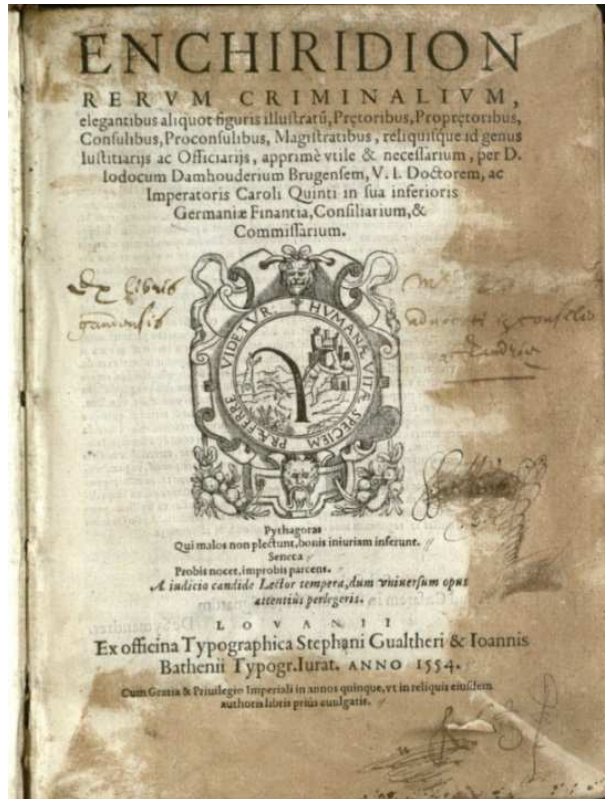 ENCHIRIDION
RERVM CRIMINALIVM,
elegantibus aliquot figuris illustratũ, Prętoribus, Proprętoribus,
Consulibus, Proconsulibus, Magistratibus, reliquisque id genus
Iustitiarijs ac Officiarijs, apprimè vtile & necessarium, per D.
Iodocum Damhouderium Brugensem, V. I. Doctorem, ac
Imperatoris Caroli Quinti in sua inferioris
Germaniæ Financia, Consiliarium, &
Commissarium.
Ex libris
HVMANÆ VITÆ SPECIEM PRÆFERRE VIDETVR.
Pythagoras
Qui malos non plectunt, bonis iniuriam inferunt.
Seneca
Probis nocet, improbis parcens.
A iudicio candide Lector tempera, dum vniuersum opus
attentiùs perlegeris.
LOVANII
Ex officina Typographica Stephani Gualtheri & Ioannis
Bathenii Typogr. Iurat. ANNO 1554.
Cum Gratia & Priuilegio Imperiali in annos quinque, vt in reliquis eiusdem
authoris libris priùs euulgatis.